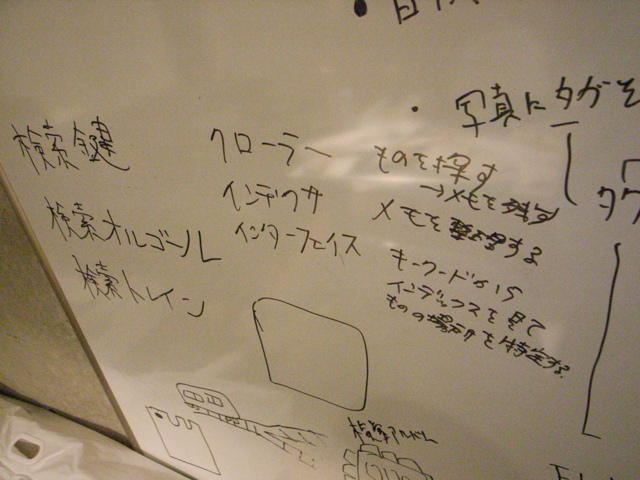 写真にタグを
検索鍵
クローラー
ものを探す
→メモを残す
検索オルゴール
インデクサ
メモを整理する
検索トレイン
インターフェイス
キーワードから
インデックスを見て
ものの場所を特定する
検索アルバム